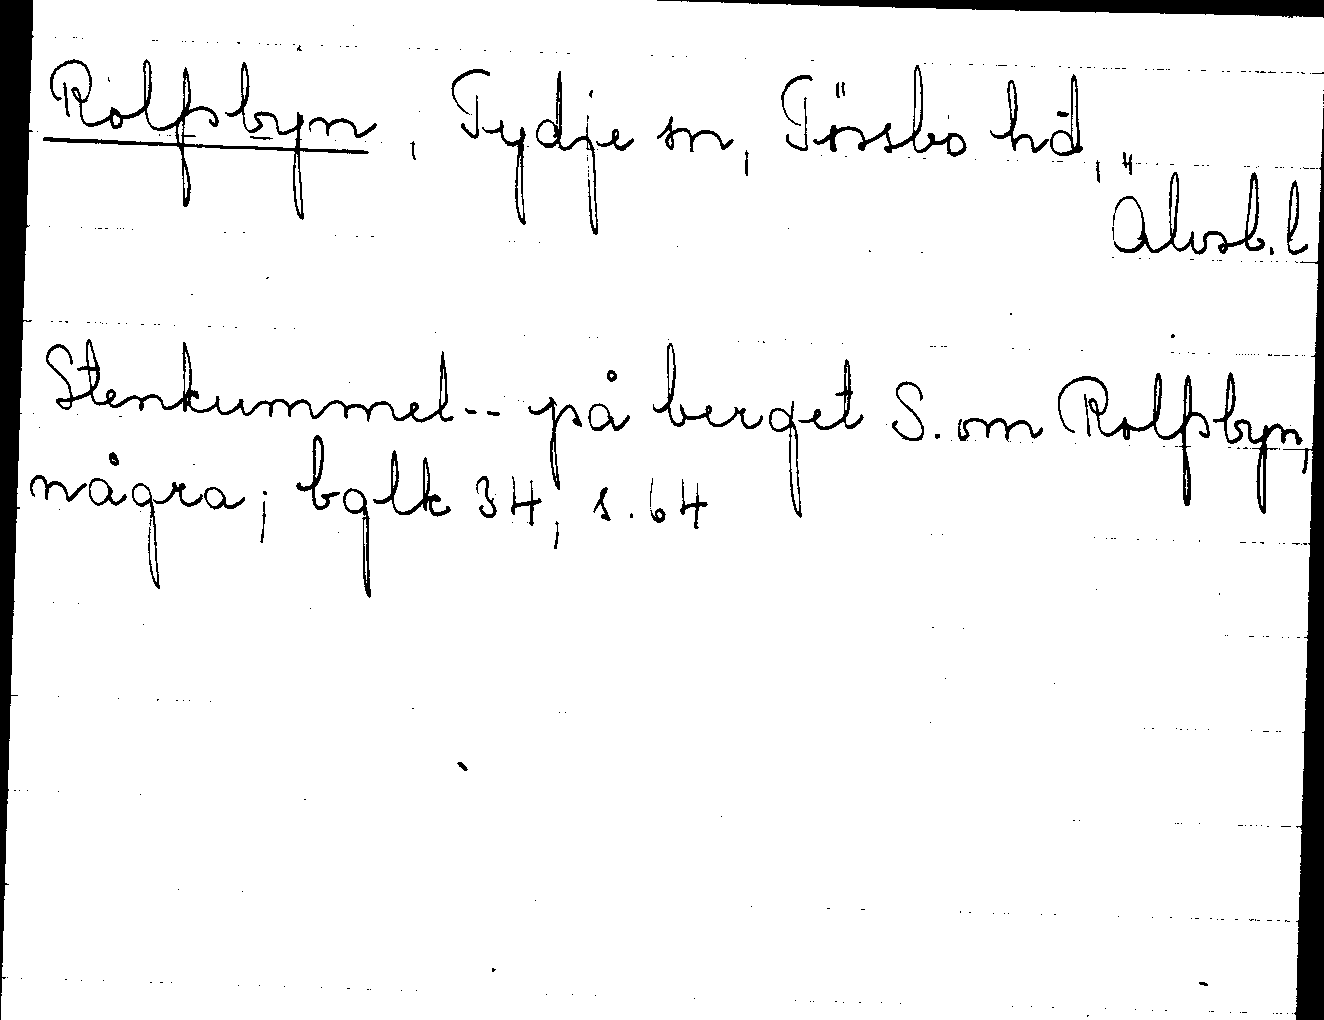 Rolfsbyn, Tydje sn, Tössbo hd,
Älvsb. l
Stenkummel -- på berget S. om Rolfsbyn,
några; bglk 34, s. 64